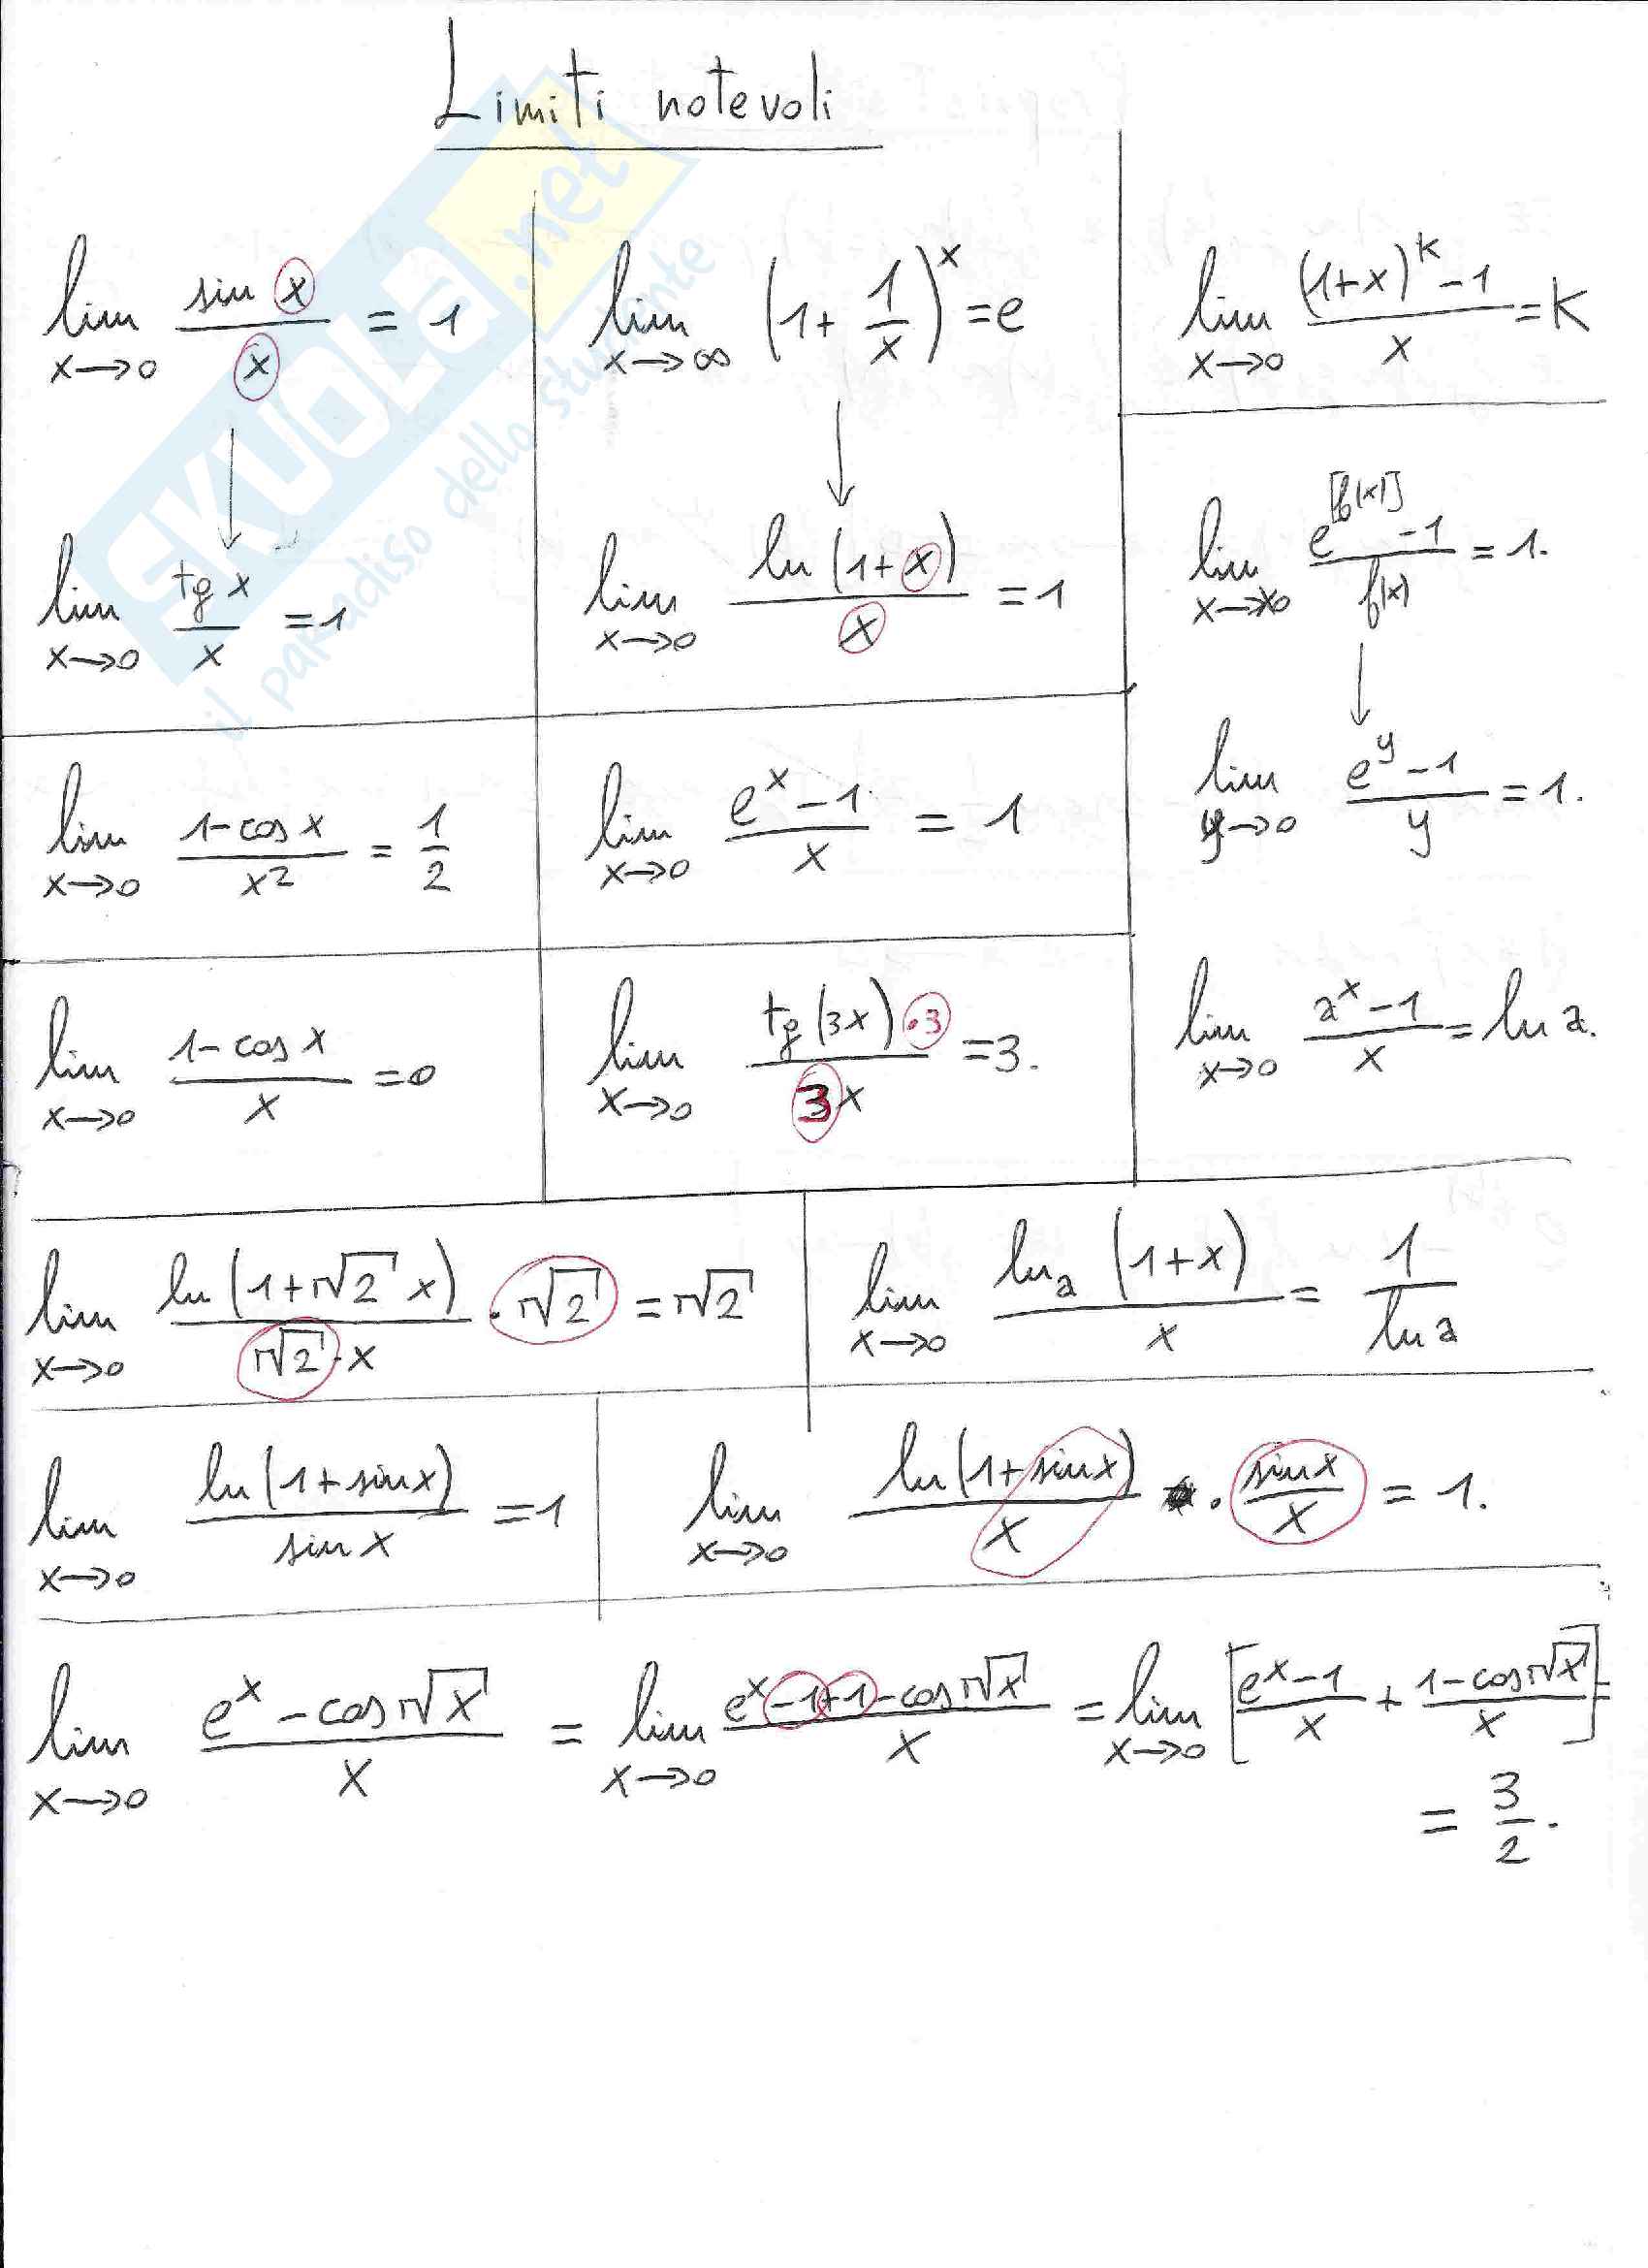 Limiti notevoli
SKUOLA.net
il paradiso dello studente
lim x→0 sin x / x = 1
↓
lim x→0 tg x / x = 1
lim x→∞ (1 + 1/x)^x = e
↓
lim x→0 ln (1+x) / x = 1
lim x→0 ((1+x)^k - 1) / x = k
lim x→x0 (e^[f(x)] - 1) / f(x) = 1.
↓
lim y→0 (e^y - 1) / y = 1.
lim x→0 (1 - cos x) / x² = 1/2
lim x→0 (e^x - 1) / x = 1
lim x→0 (1 - cos x) / x = 0
lim x→0 tg (3x) · 3 / 3x = 3.
lim x→0 (a^x - 1) / x = ln a.
lim x→0 ln (1+√2 x) / (√2 · x) · √2 = √2
lim x→0 ln_a (1+x) / x = 1 / ln a
lim x→0 ln (1+sin x) / sin x = 1
lim x→0 ln (1+sin x) / x · sin x / x = 1.
lim x→0 (e^x - cos √x) / x = lim x→0 (e^x - 1 + 1 - cos √x) / x = lim x→0 [(e^x - 1) / x + (1 - cos √x) / x] =
= 3/2.